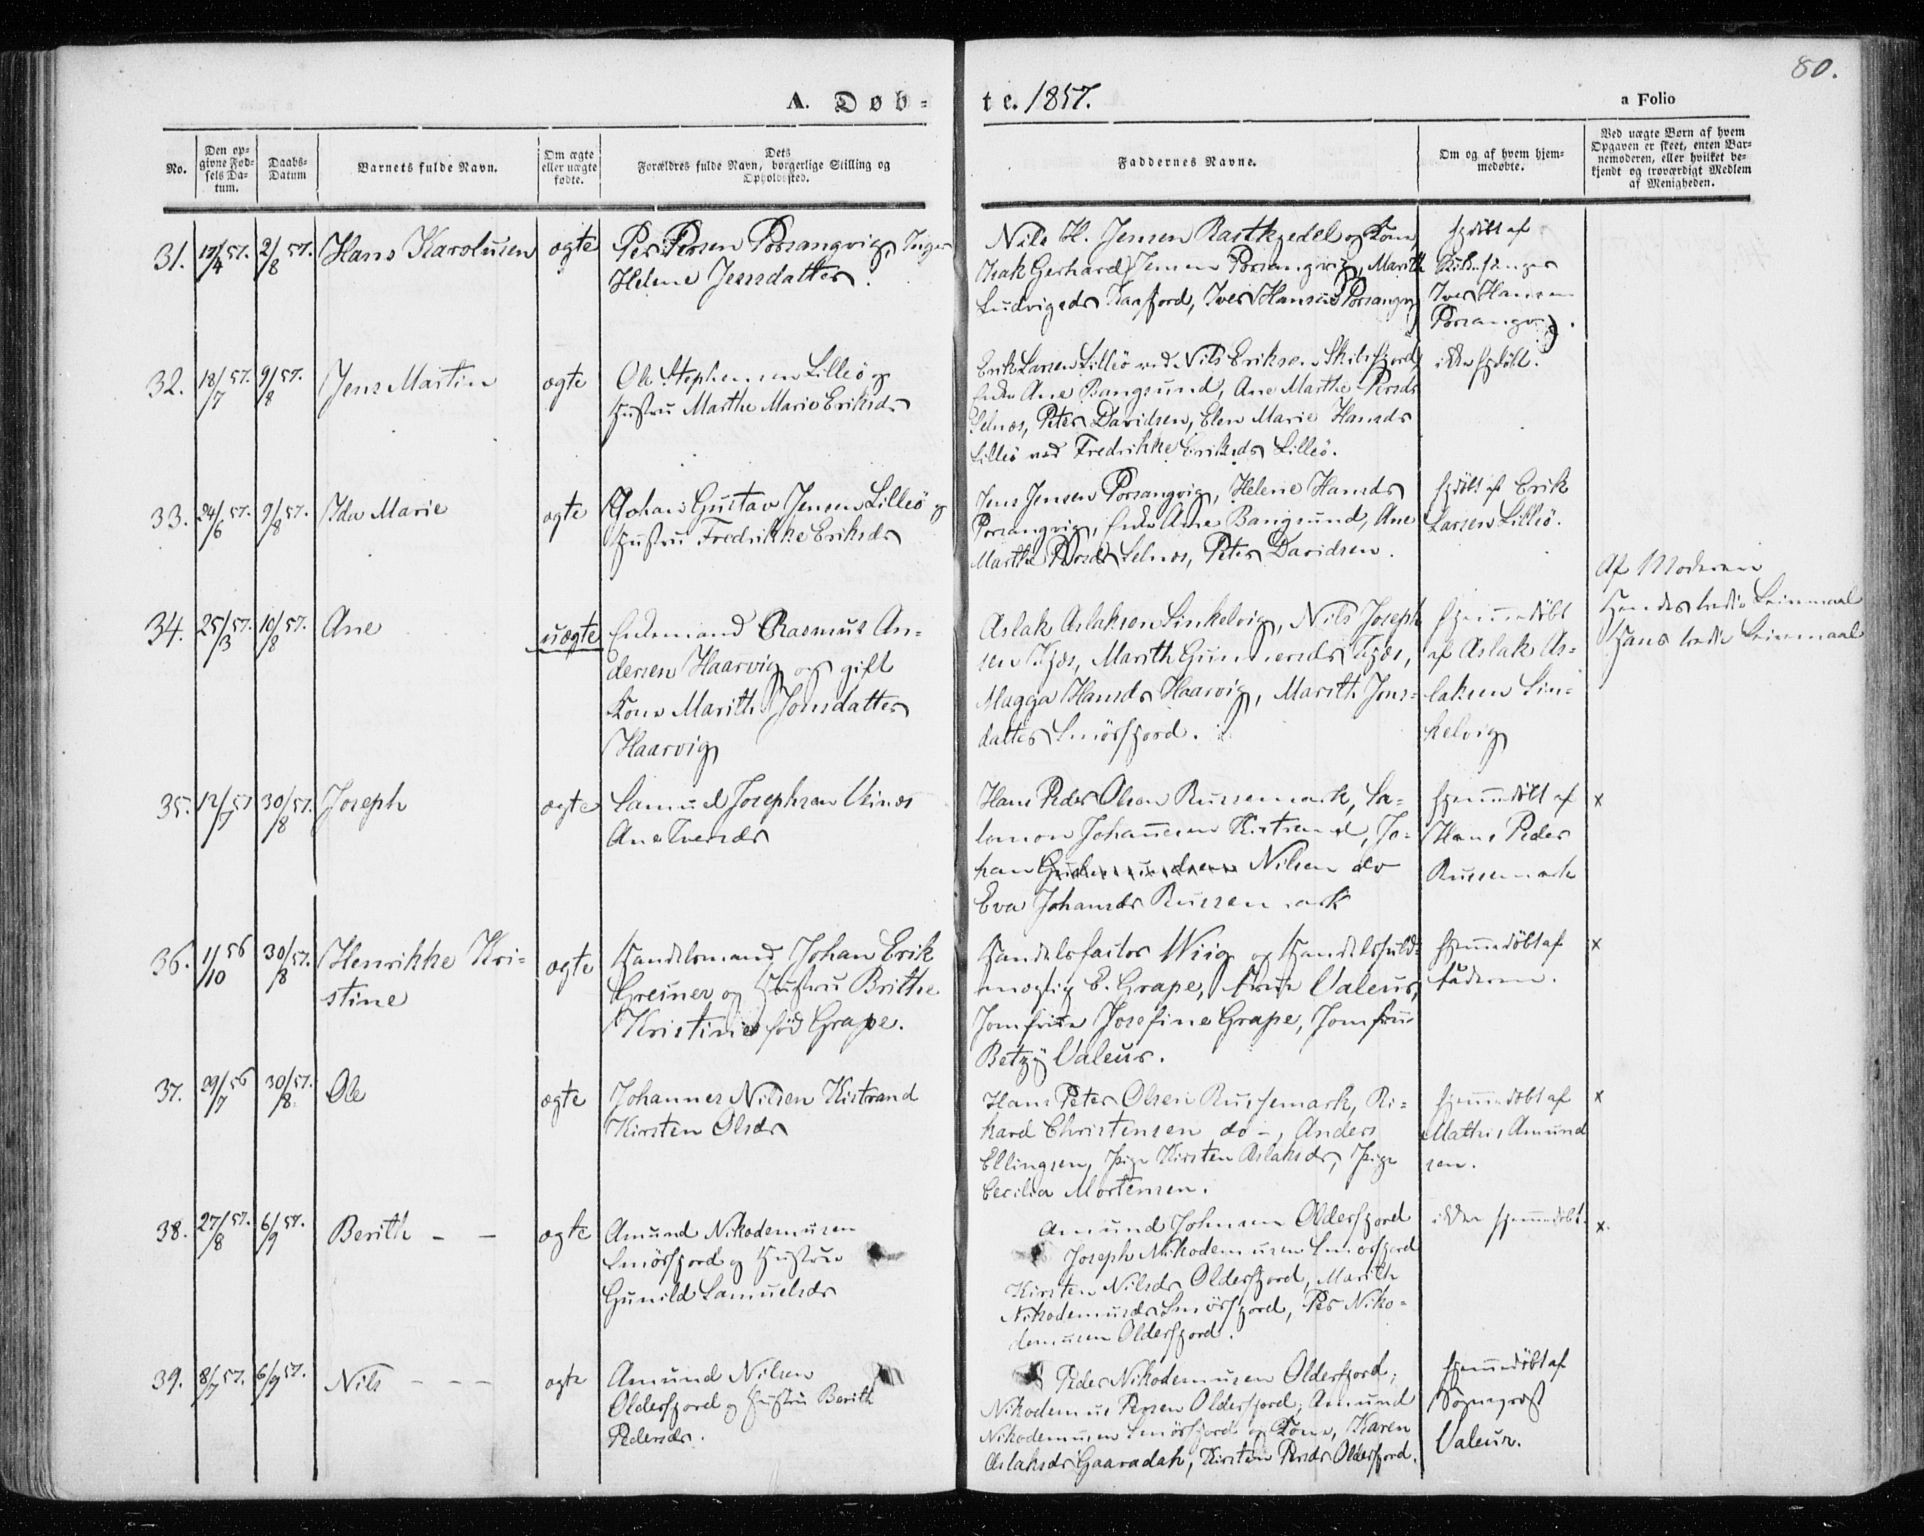 80.
A. Døb-
te. 1857.
a Folio
No.
Den op-
givne Fød-
sels Da-
tum.
Daabs-
Datum
Barnets fulde Navn.
Om ægte
eller uægte
fødte.
Dets
Forældres fulde Navn, borgerlige Stilling og
Opholdssted.
Faddernes Navne.
Om og af hvem hjem-
medøbte.
Ved uægte Børn af hvem
Opgaven er skeet, enten Bar-
nemoderen, eller hvilket be-
kjendt og troværdigt Medlem
af Menigheden.
31. 17/4 57. 2/8 57. Hans Karolusen ægte
Per Persen Porsangvig, Inger
Helene Jensdatter.
Nils H. Jensen Rastkjedel og Kone,
Isak Gerhard Jensen Porsangvig, Marith
Ludvigsdr Kaafjord, Iver Hansen Porsangvig
hjdøbt af
Kirkesanger
Iver Hansen
Porsangvig.
32. 18/7 57. 9/8 57. Jens Martin ægte
Ole Stephensen Lilleö og
Hustru Marthe Marie Eriksdr
Erik Larsen Lilleö ved Nils Eriksen Skilsfjord,
Enke Ane Bangsund, Ane Marthe Persdr
Selnæs, Peter Davidsen, Elen Marie Hansdr
Lilleö ved Fredrikke Eriksdr Lilleö.
ikke hjdøbt.
33. 24/6 57. 9/8 57. Ida Marie ægte
Johan Gustav Jensen Lilleö og
Hustru Fredrikke Eriksdr
Jens Jensen Porsangvig, Helene Hansdr
Porsangvig, Enke Ane Bangsund, Ane
Marthe Persdr Selnæs, Peter Davidsen.
hjdøbt af Erik
Larsen Lilleö.
34. 25/3 57. 10/8 57. Ane uægte
Enkemand Rasmus An-
dersen Haarvig og gift
Kone Marith Jonsdatter
Haarvig
Aslak Aslaksen Sinkelvig, Nils Joseph
sen Kjæs, Marith Gunnersdr Kjæs,
Magga Hansdr Haarvig, Marith Jons-
datter Smörfjord.
hjemmedøbt
af Aslak As-
laksen Sin-
kelvig
Af Moderen
Hendes tredie Leiermaal
Hans tredie Leiermaal
35. 12/7 57 30/8 57. Joseph ægte
Samuel Josephsen Veines
Ane Iversdr
Hans Peder Olsen Russemark, Sa-
lomon Johannesen Kistrand, Jo-
han Nilsen do
Eva Johansdr Russemark
hjemmedøbt af
Hans Peder
Russemark
x
36. 1/10 56 30/8 57. Henrikke Kri-
stine
ægte
Handelsmand Johan Erik
Greiner og Hustru Brithe
Kristine född Grape.
Handelsfactor Wiig og Handelsfuld-
mægtig E. Grape, Frue Valeur,
Jomfrue Josefine Grape, Jomfrue
Betzy Valeur.
hjemmedøbt af
Faderen.
x
37. 29/7 56 30/8 57. Ole ægte
Johannes Nilsen Kistrand
Kirsten Olsdr
Hans Peter Olsen Russemark, Ri-
kard Christensen do-, Anders
Ellingsen, Pige Kirsten Aslaksdr, Pige
Cecilia Mortensen.
hjemmedøbt af
Mathis Amund
sen.
x
38. 27/8 57. 6/9 57. Berith - - ægte
Amund Nikodemusen
Smörfjord og Hustru
Gunild Samuelsdr
Amund Johnsen Olderfjord
Joseph Nikodemusen Smörfjord
Kirsten Nilsdr Olderfjord, Marith
Nikodemusdr Smörfjord, Per Niko-
demusen Olderfjord.
ikke hjemmedøbt.
x.
39. 8/7 57. 6/9 57. Nils - - - ægte
Amund Nilsen
Olderfjord og Hustru Berith
Pedersdr.
Peder Nikodemusen Olderfjord,
Nikodemus Persen Olderfjord, Amund
Nikodemusen Smörfjord og Kone, Karen
Aslaksdr Gaaradak, Kirsten Persdr Olderfjord.
hjemmedøbt af
Sognepræst
Valeur.